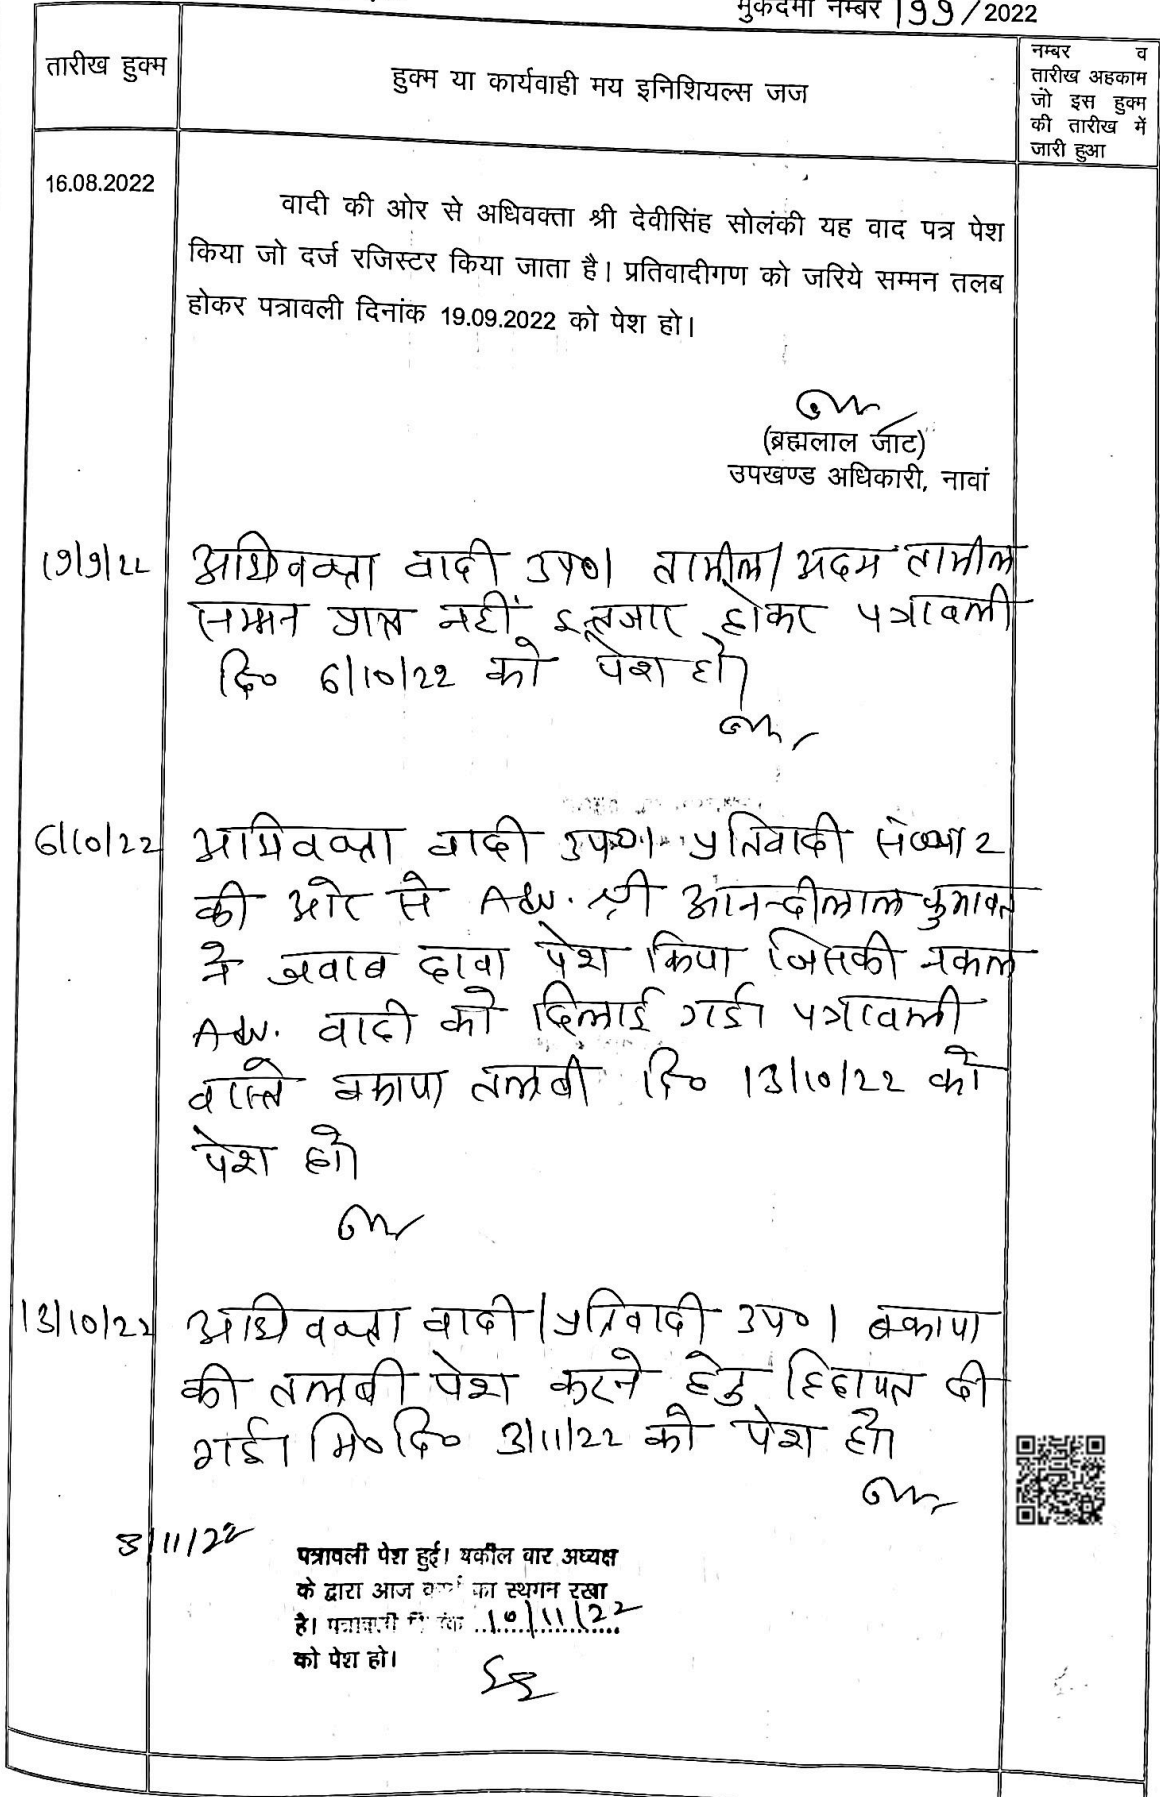 मुकदमा नम्बर 199/2022
तारीख हुक्म
हुक्म या कार्यवाही मय इनिशियल्स जज
नम्बर व
तारीख अहकाम
जो इस हुक्म
की तारीख में
जारी हुआ
16.08.2022
वादी की ओर से अधिवक्ता श्री देवीसिंह सोलंकी यह वाद पत्र पेश
किया जो दर्ज रजिस्टर किया जाता है। प्रतिवादीगण को जरिये सम्मन तलब
होकर पत्रावली दिनांक 19.09.2022 को पेश हो।
(ब्रह्मलाल जाट)
उपखण्ड अधिकारी, नावां
19/9/22 अधिवक्ता वादी उप०। तामील/अदम तामील
सम्मन प्राप्त नहीं इन्तजार होकर पत्रावली
दि० 6/10/22 को पेश हो।
6/10/22 अधिवक्ता वादी उप०। प्रतिवादी संख्या 2
की ओर से Adv. श्री आनन्दीलाल कुमावत
ने जवाब दावा पेश किया जिसकी नकल
Adv. वादी को दिलाई गई। पत्रावली
वास्ते बकाया तलबी दि० 13/10/22 को
पेश हो।
13/10/22 अधिवक्ता वादी/प्रतिवादी उप०। बकाया
की तलबी पेश करने हेतु हिदायत दी
गई। मि० दि० 3/11/22 को पेश हो।
3/11/22
पत्रावली पेश हुई। वकील बार अध्यक्ष
के द्वारा आज का स्थगन रखा
है। पत्रावली 10/11/22
को पेश हो।